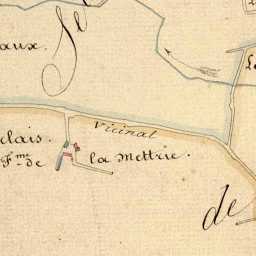 aux.
Vicinal
lais.
F.me de la Mettrie.
de